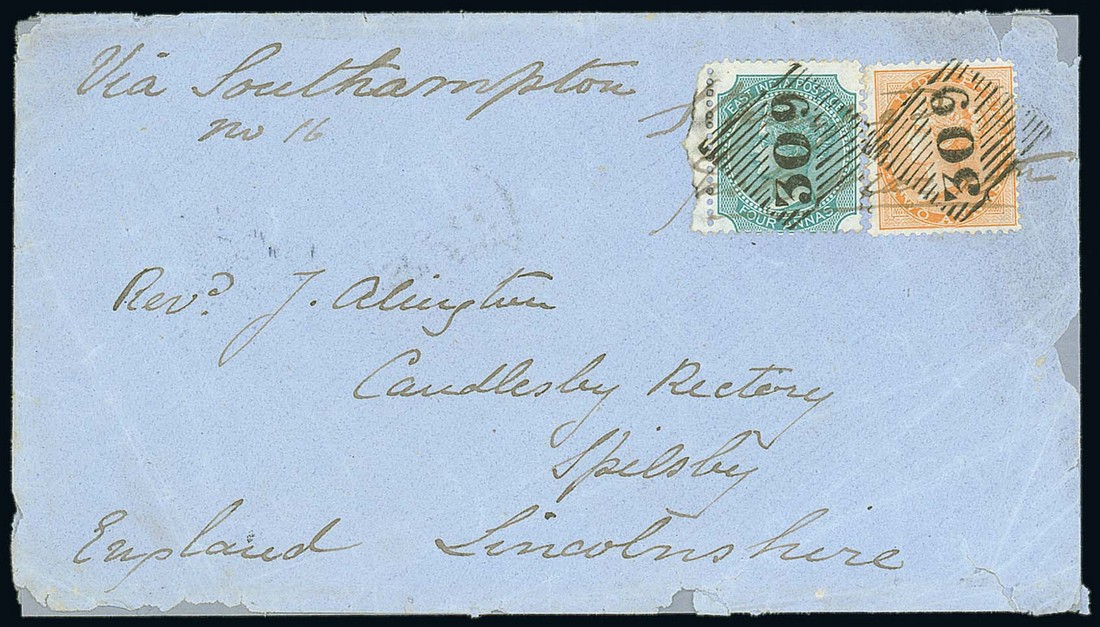 Via Southampton
no 16
EAST INDIA POSTAGE
FOUR ANNAS
309
309
Revd. J. Alington
Candlesby Rectory
Spilsby
England Lincolnshire